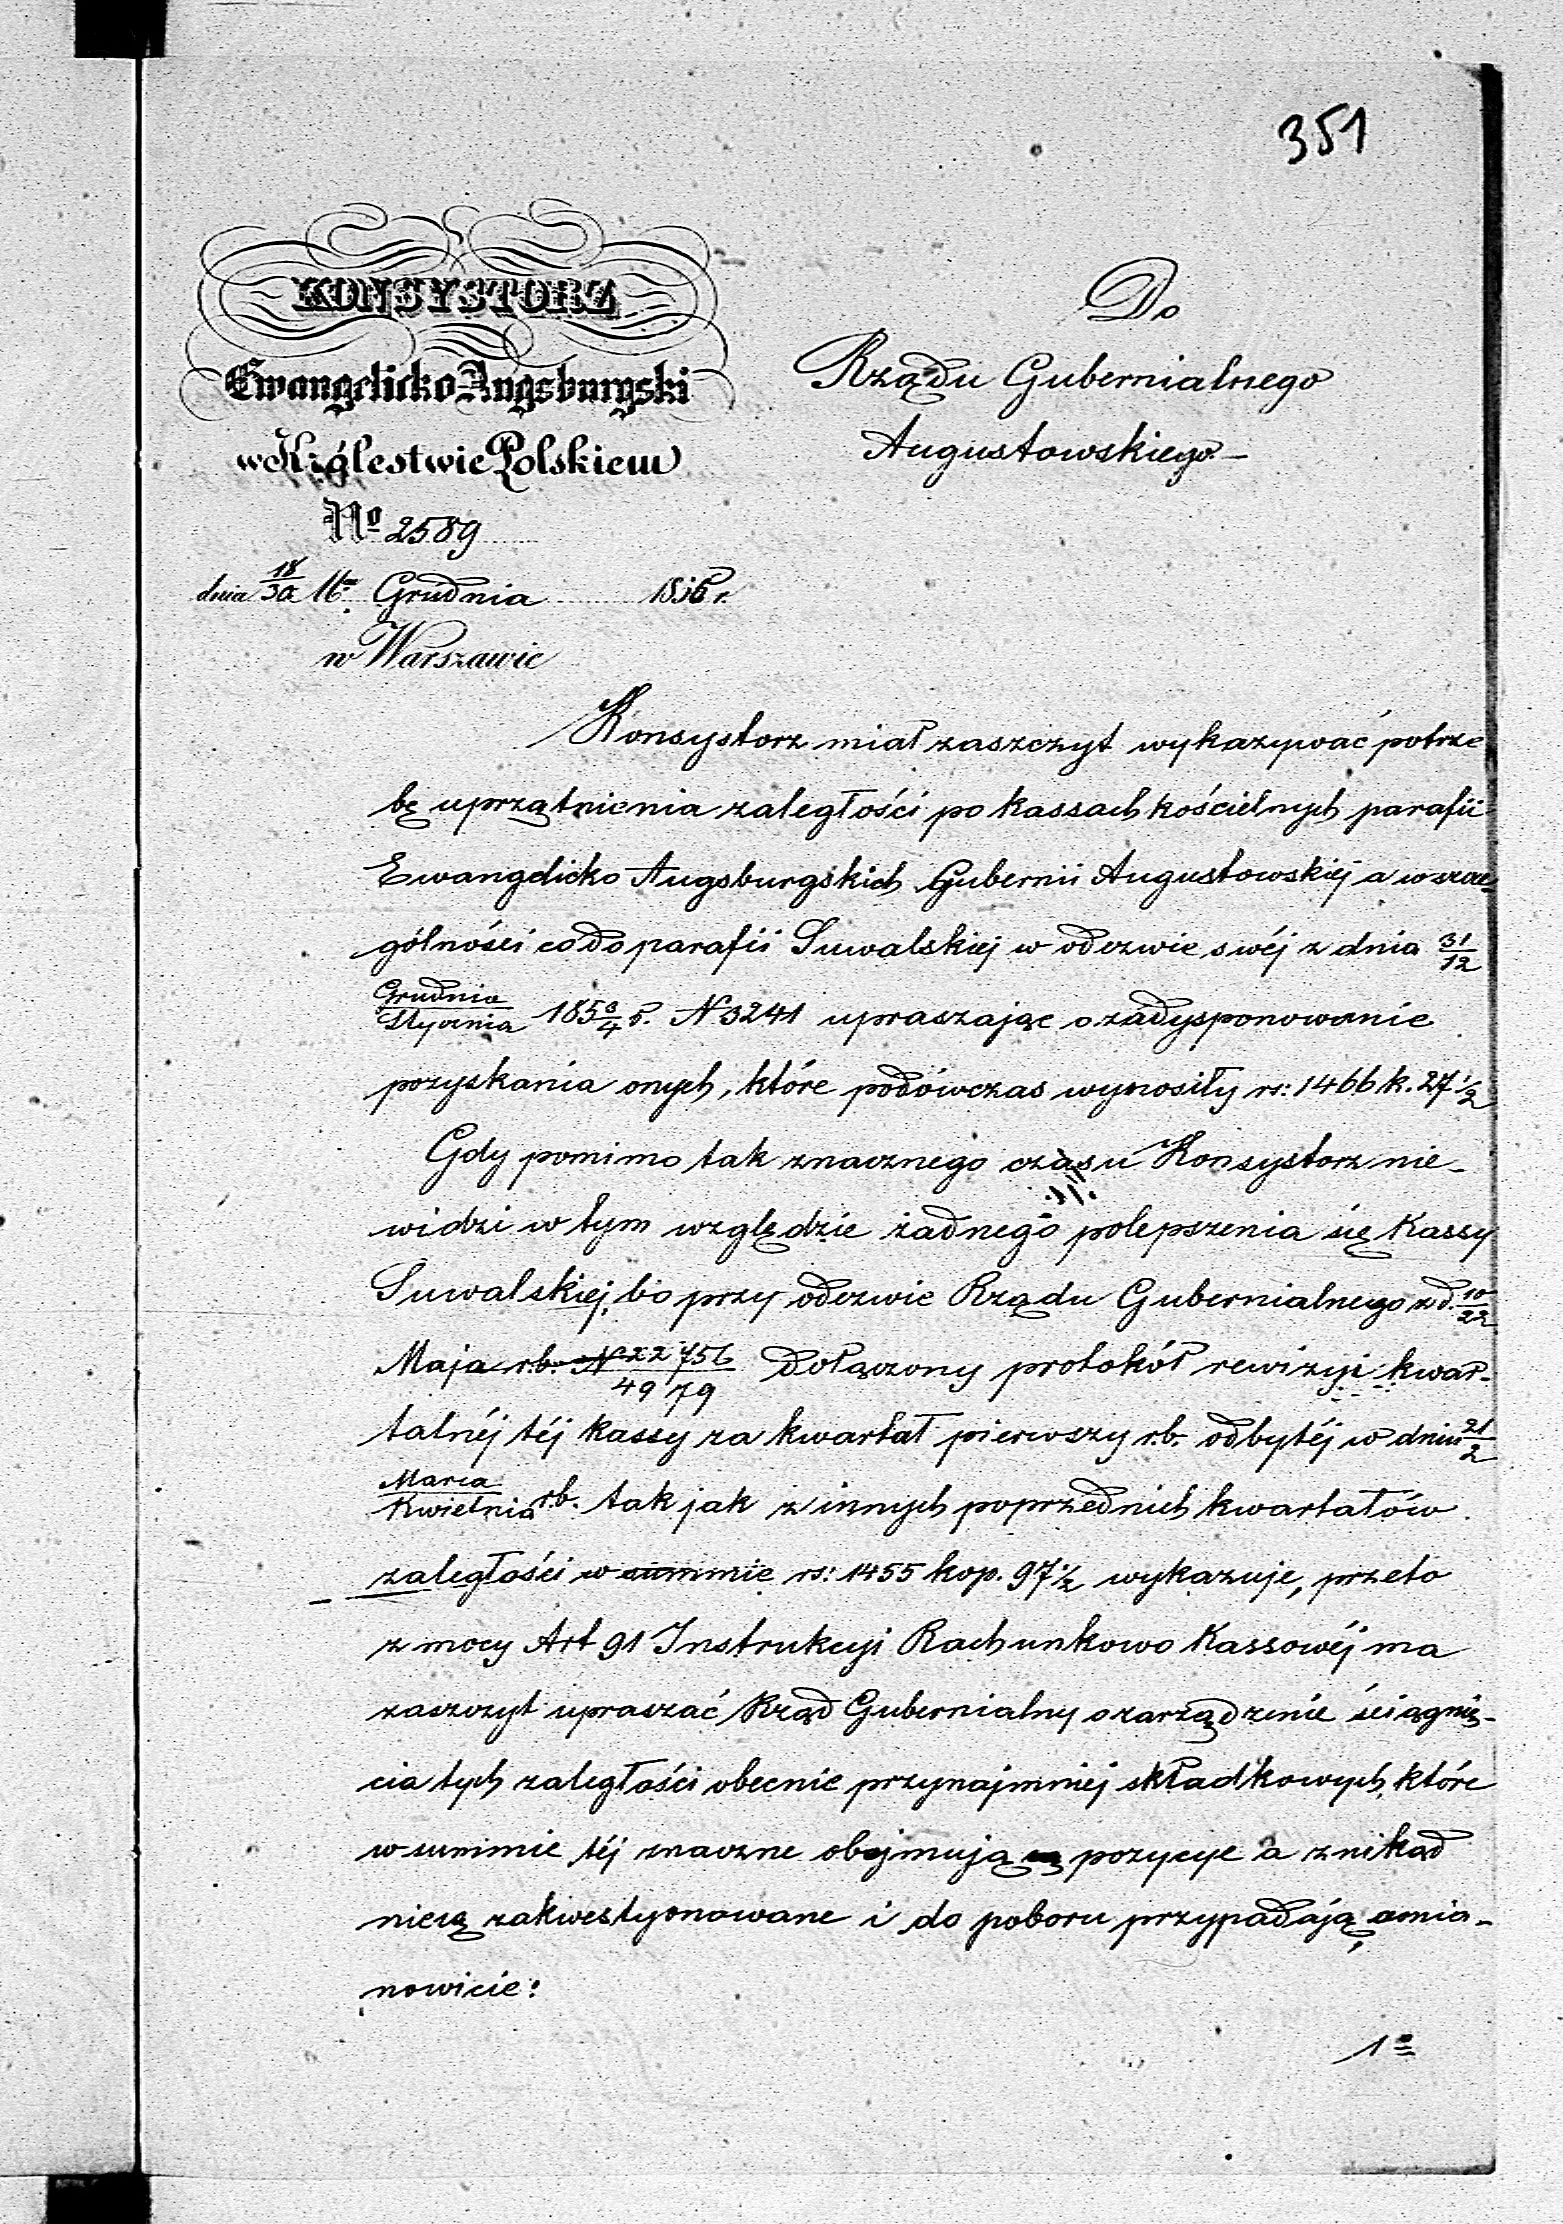 351
KONSYSTORZ
Ewangelicko Augsburgski
w Królestwie Polskiem
No 2589
dnia 18/30 Grudnia 1856 r.
w Warszawie
Do
Rządu Gubernialnego
Augustowskiego
Konsystorz miał zaszczyt wykazywać potrze
bę uprzątnienia zaległości po kassach kościelnych parafii
Ewangelicko Augsburgskich Gubernii Augustowskiej a w szcze
gólności co do parafii Suwalskiej w odezwie swéj z dnia 31/12
Grudnia/Stycznia 185 3/4 r. N 3241 upraszając o zadysponowanie
pozyskania onych, które podówczas wynosiły rs: 1466 k. 27 1/2
Gdy pomimo tak znacznego czasu Konsystorz nie-
widzi w tym względzie żadnego polepszenia się Kassy
Suwalskiej, bo przy odezwie Rządu Gubernialnego z d. 10/22
Maja r.b. N 22756/4979 dołączony protokół rewizyi kwar-
talnéj téj Kassy za kwartał pierwszy r.b. odbytéj w dniu 21/2
Marca/Kwietnia r.b. tak jak z innych poprzednich kwartałów
zaległości w summie rs: 1455 kop. 97 1/2 wykazuje, przeto
z mocy Art 91 Instrukcyi Rachunkowo Kassowéj ma
zaszczyt upraszać Rząd Gubernialny o zarządzenie ściągnię-
cia tych zaległości obecnie przynajmniej składkowych, które
w summie téj znaczne obejmują pozycye a znikąd
niesą zakwestyonowane i do poboru przypadają, amia-
nowicie:
1o